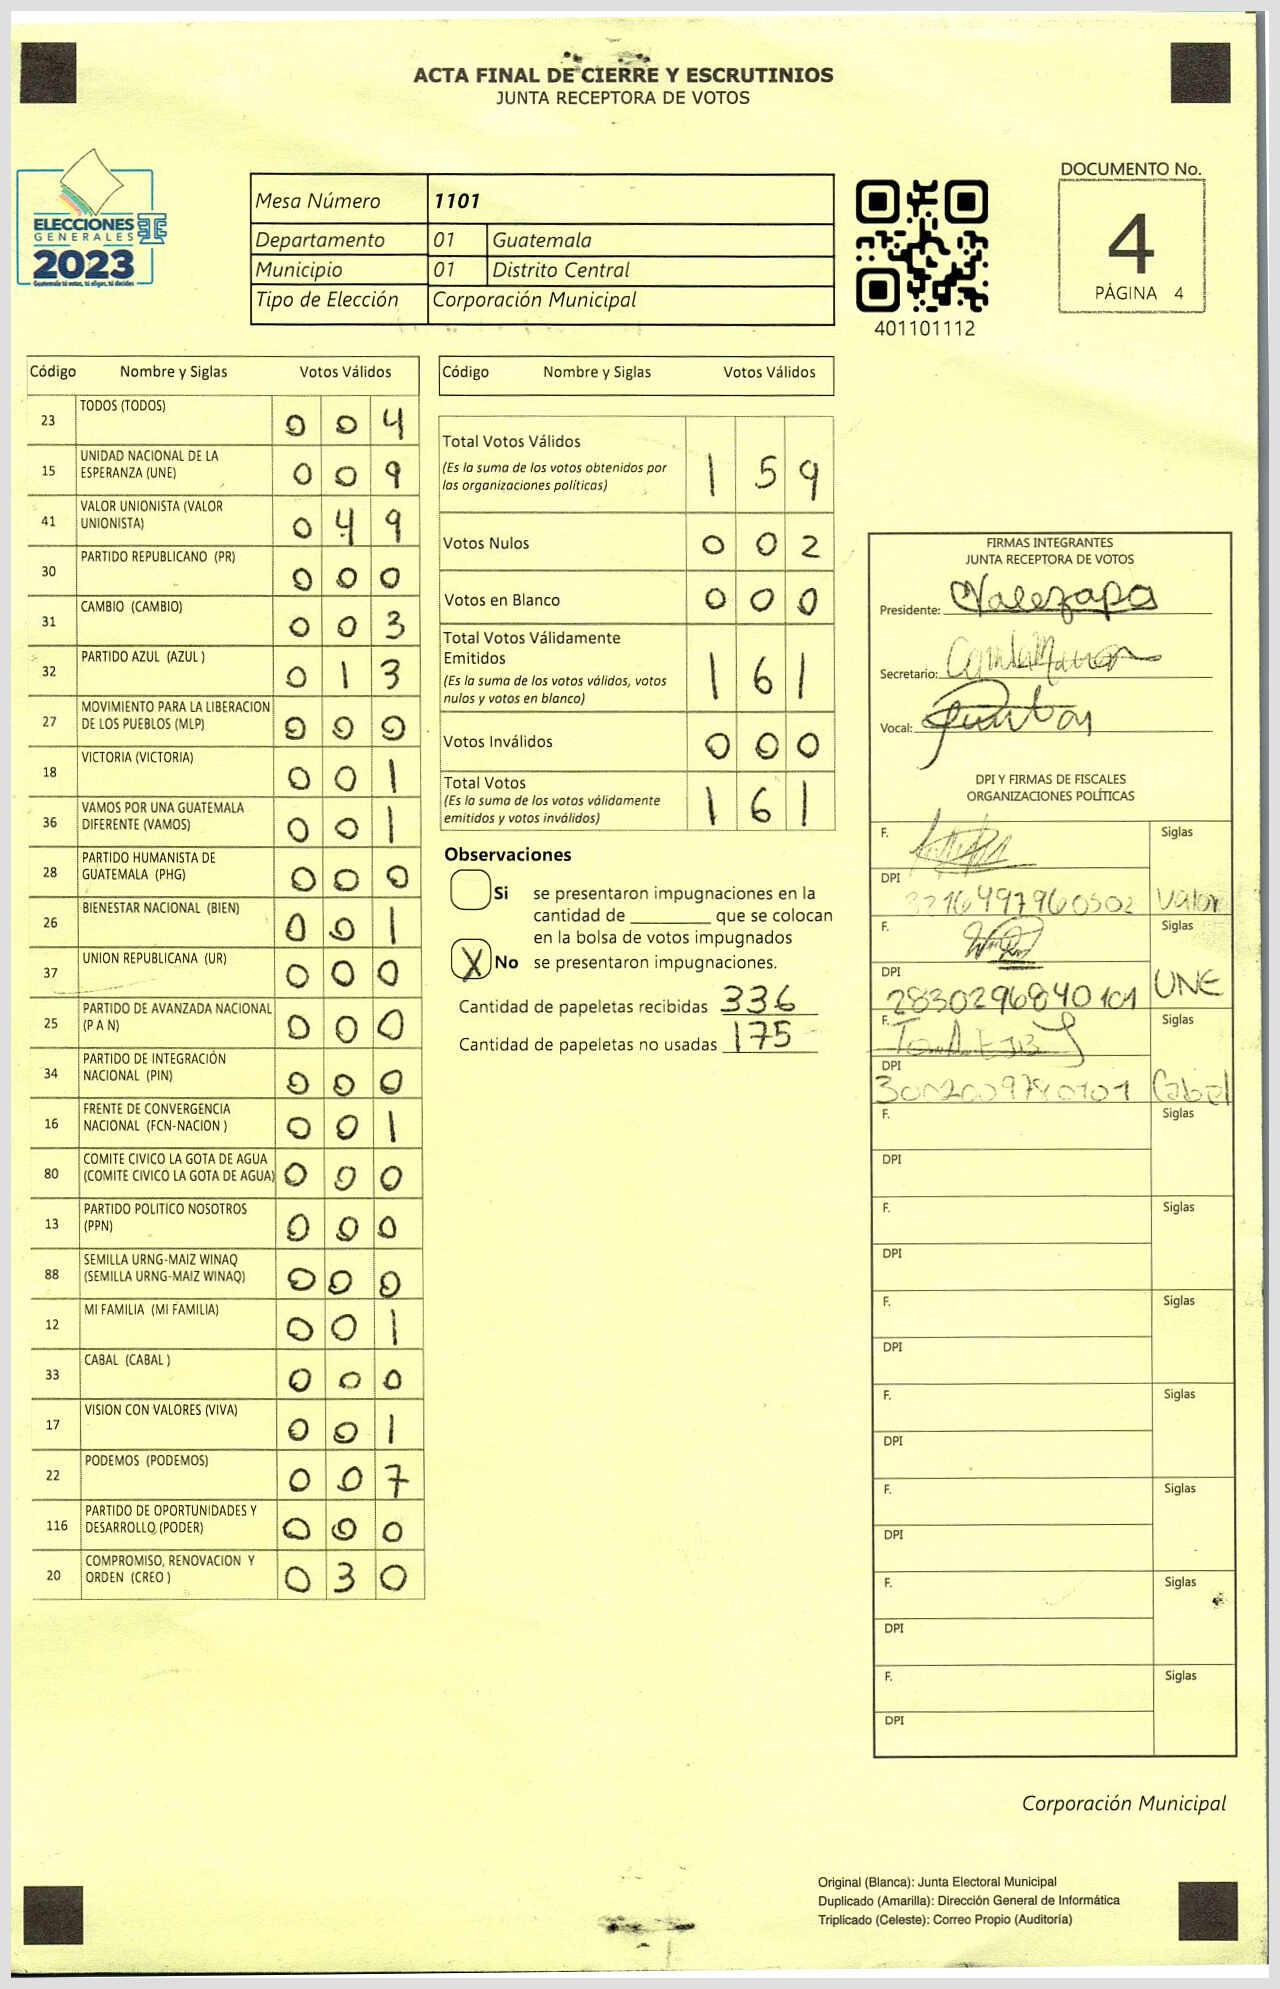 ACTA FINAL DE CIERRE Y ESCRUTINIOS
JUNTA RECEPTORA DE VOTOS
ELECCIONES
GENERALES
2023
Guatemala tú votas, tú eliges, tú decides
Mesa Número 1101
Departamento 01 Guatemala
Municipio 01 Distrito Central
Tipo de Elección Corporación Municipal
401101112
DOCUMENTO No.
4
PÁGINA 4
Código Nombre y Siglas Votos Válidos
23 TODOS (TODOS) 0 0 4
15 UNIDAD NACIONAL DE LA
ESPERANZA (UNE) 0 0 9
41 VALOR UNIONISTA (VALOR
UNIONISTA) 0 4 9
30 PARTIDO REPUBLICANO (PR) 0 0 0
31 CAMBIO (CAMBIO) 0 0 3
32 PARTIDO AZUL (AZUL ) 0 1 3
27 MOVIMIENTO PARA LA LIBERACION
DE LOS PUEBLOS (MLP) 0 0 0
18 VICTORIA (VICTORIA) 0 0 1
36 VAMOS POR UNA GUATEMALA
DIFERENTE (VAMOS) 0 0 1
28 PARTIDO HUMANISTA DE
GUATEMALA (PHG) 0 0 0
26 BIENESTAR NACIONAL (BIEN) 0 0 1
37 UNION REPUBLICANA (UR) 0 0 0
25 PARTIDO DE AVANZADA NACIONAL
(P A N) 0 0 0
34 PARTIDO DE INTEGRACIÓN
NACIONAL (PIN) 0 0 0
16 FRENTE DE CONVERGENCIA
NACIONAL (FCN-NACION ) 0 0 1
80 COMITE CIVICO LA GOTA DE AGUA
(COMITE CIVICO LA GOTA DE AGUA) 0 0 0
13 PARTIDO POLITICO NOSOTROS
(PPN) 0 0 0
88 SEMILLA URNG-MAIZ WINAQ
(SEMILLA URNG-MAIZ WINAQ) 0 0 0
12 MI FAMILIA (MI FAMILIA) 0 0 1
33 CABAL (CABAL ) 0 0 0
17 VISION CON VALORES (VIVA) 0 0 1
22 PODEMOS (PODEMOS) 0 0 7
116 PARTIDO DE OPORTUNIDADES Y
DESARROLLO (PODER) 0 0 0
20 COMPROMISO, RENOVACION Y
ORDEN (CREO ) 0 3 0
Código Nombre y Siglas Votos Válidos
Total Votos Válidos
(Es la suma de los votos obtenidos por
las organizaciones políticas) 1 5 9
Votos Nulos 0 0 2
Votos en Blanco 0 0 0
Total Votos Válidamente
Emitidos
(Es la suma de los votos válidos, votos
nulos y votos en blanco) 1 6 1
Votos Inválidos 0 0 0
Total Votos
(Es la suma de los votos válidamente
emitidos y votos inválidos) 1 6 1
Observaciones
Si se presentaron impugnaciones en la
cantidad de ________ que se colocan
en la bolsa de votos impugnados
X No se presentaron impugnaciones.
Cantidad de papeletas recibidas 336
Cantidad de papeletas no usadas 175
FIRMAS INTEGRANTES
JUNTA RECEPTORA DE VOTOS
Presidente:
Secretario:
Vocal:
DPI Y FIRMAS DE FISCALES
ORGANIZACIONES POLÍTICAS
F. Siglas
DPI
Valor
F. Siglas
DPI
2830296840101 UNE
F. Siglas
DPI
Cabal
F. Siglas
DPI
F. Siglas
DPI
F. Siglas
DPI
F. Siglas
DPI
F. Siglas
DPI
F. Siglas
DPI
F. Siglas
DPI
Corporación Municipal
Original (Blanca): Junta Electoral Municipal
Duplicado (Amarilla): Dirección General de Informática
Triplicado (Celeste): Correo Propio (Auditoría)